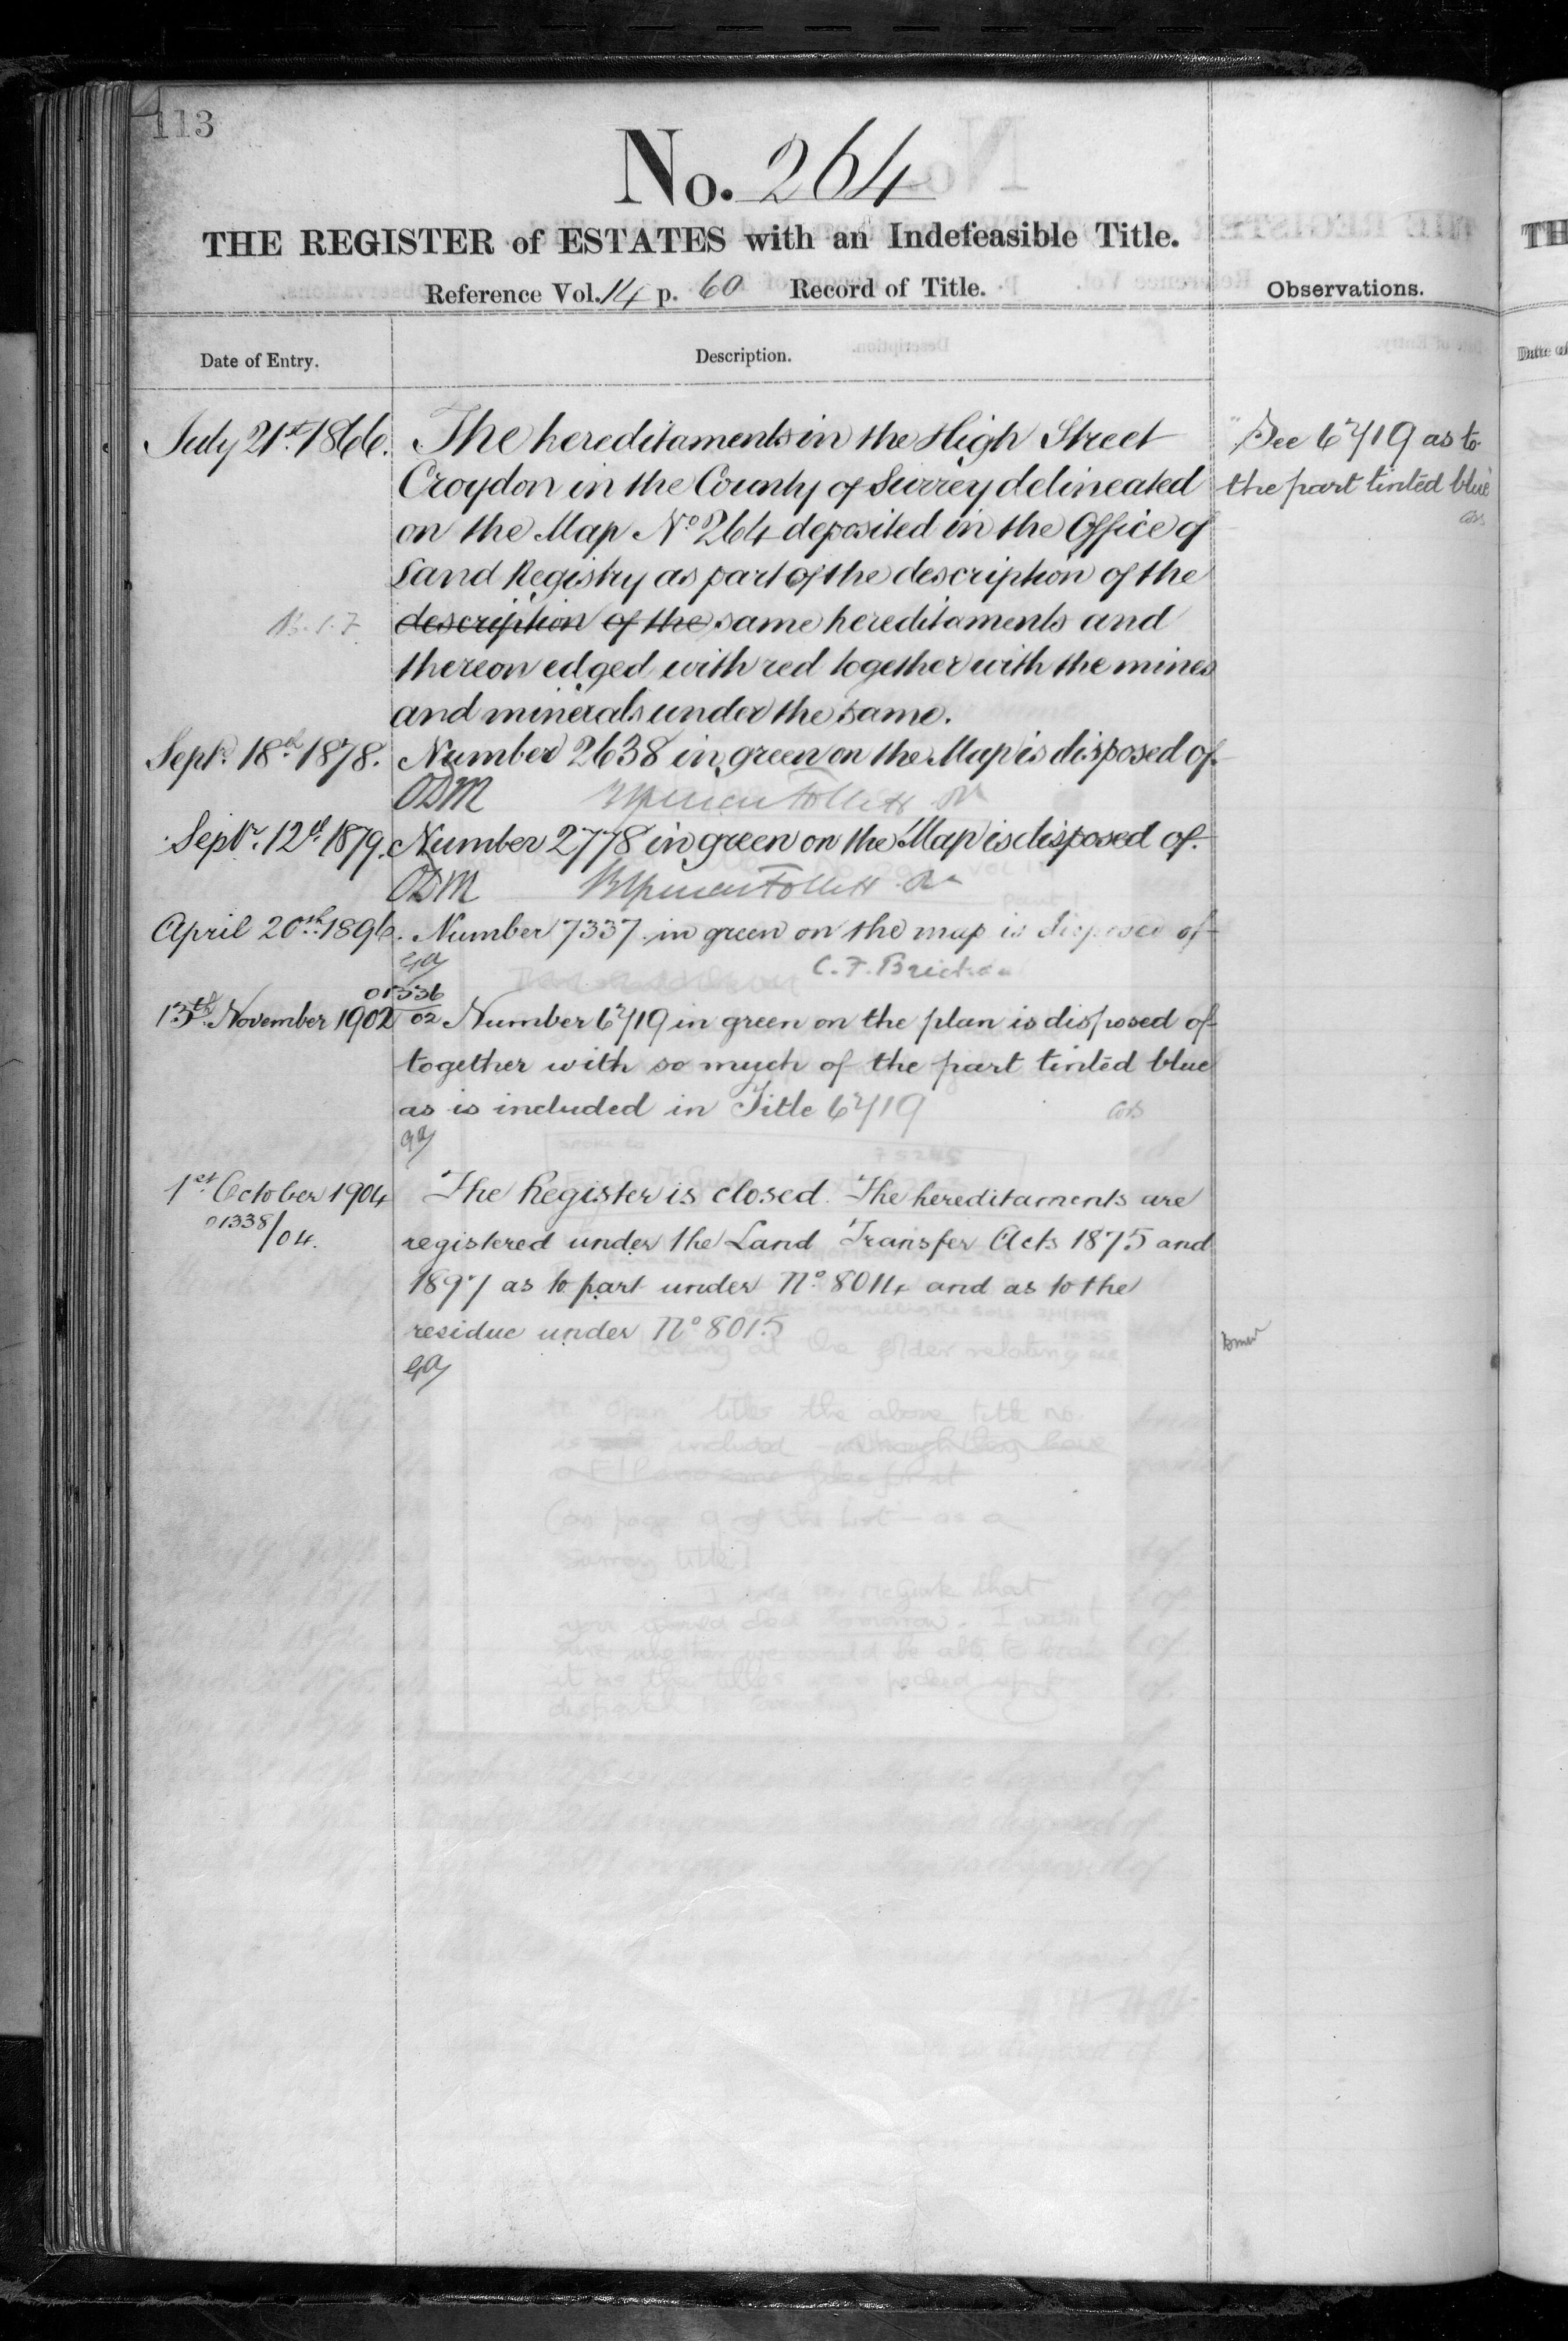 113
No. 264
THE REGISTER of ESTATES with an Indefeasible Title.
Reference Vol. 14 p. 60 Record of Title.
Observations.
Date of Entry.
Description.
July 21st 1866.
The hereditaments in the High Street
Croydon in the County of Surrey delineated
on the Map No 264 deposited in the Office of
Land Registry as part of the description of the
description of the same hereditaments and
thereon edged with red together with the mines
and minerals under the same.
See 6719 as to
the part tinted blue
Septr 18th 1878.
Number 2638 in green on the Map is disposed of
ODM
Follett
Septr. 12th 1879.
Number 2778 in green on the Map is disposed of.
ODM
Follett
April 20th 1896.
Number 7337 in green on the map is disposed of
C. F. Brickdale
01336/02
13th November 1902
Number 6719 in green on the plan is disposed of
together with so much of the part tinted blue
as is included in Title 6719
1st October 1904
01338/04.
The Register is closed. The hereditaments are
registered under the Land Transfer Acts 1875 and
1897 as to part under No 8014 and as to the
residue under No 8015
TH
Date of